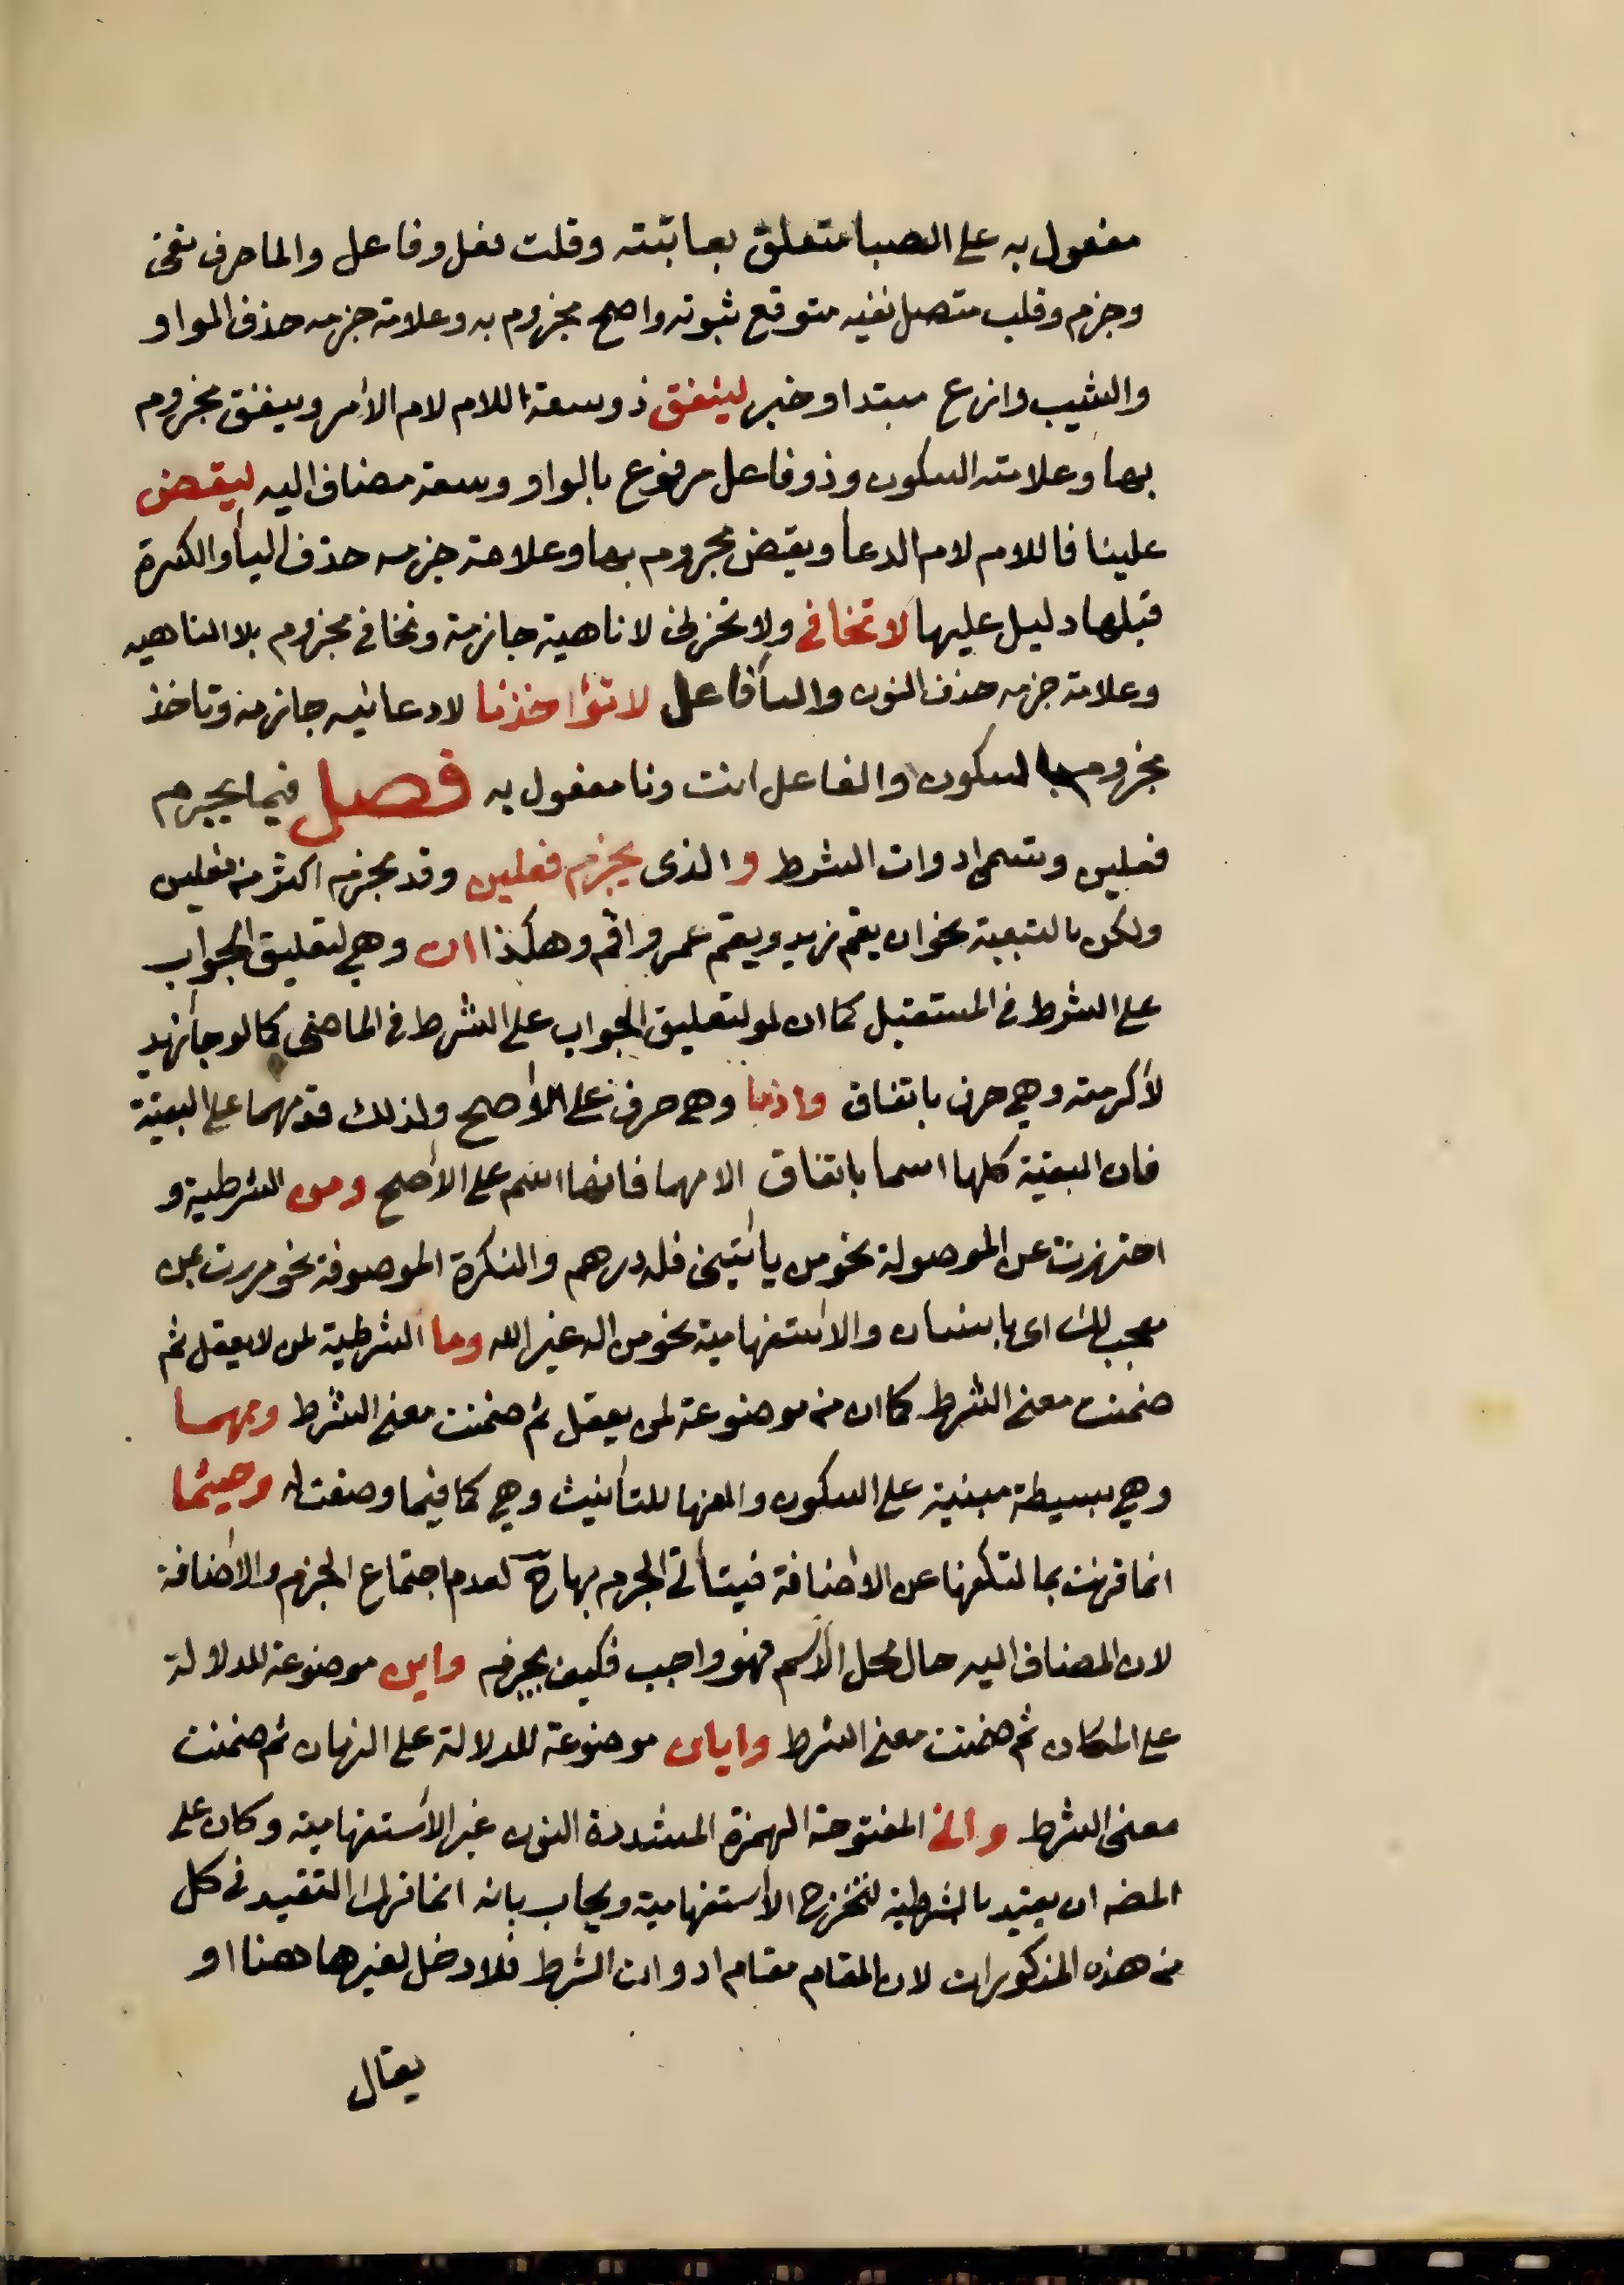 مفعول به على الصبا متعلق بعاتبته وقلت فعل وفاعل والما حرف نفى
وجزم وقلب متصل نفيه متوقع ثبوته واصح مجزوم به وعلامة جزمه حذف الواو
والشيب وازع مبتدا وخبر لينفق ذو سعة اللام لام الأمر وينفق مجزوم
بها وعلامته السكون وذو فاعل مرفوع بالواو وسعة مضاف اليه ليقض
علينا فاللام لام الدعأ ويقض مجزوم بها وعلامة جزمه حذف اليأ والكسرة
قبلها دليل عليها لا تخافى ولا تحزنى لا ناهية جازمة وتخافى مجزوم بلا الناهيه
وعلامة جزمه حذف النون واليأ فاعل لا تؤاخذنا لا دعائيه جازمة وتاخذ
مجزوم بالسكون والفاعل انت ونا مفعول به فصل فيما يجزم
فعلين وتسمى ادوات الشرط والذى يجزم فعلين وقد يجزم اكثر من فعلين
ولكن بالتبعية نحو ان يقم زيد ويقم عمرو اقم وهكذا ان وهى لتعليق الجواب
على الشرط فى المستقبل كما ان لو لتعليق الجواب على الشرط فى الماضى كما لو جأ زيد
لأكرمته وهى حرف باتفاق واذما وهى حرف على الأصح ولذلك قدمهما على البقية
فان البقية كلها اسما باتفاق الا مهما فانها اسم على الأصح ومن الشرطية و
احترزت عن الموصولة نحو من يأتينى فله درهم والنكرة الموصوفة نحو مررت بمن
معجب لك اى بانسان والاستفهامية نحو من اله غير الله وما الشرطية لمن لا يعقل ثم
ضمنت معنى الشرط كما ان من موضوعة لمن يعقل ثم ضمنت معنى الشرط ومهما
وهى بسيطة مبنية على السكون والفها للتأنيث وهى كما فيما وضعت له وحيثما
انما قرنت بما لتكفها عن الاضافة فيتأتى الجزم بها ح لعدم اجتماع الجزم والأضافة
لان المضاف اليه حال محل الأسم فهو واجب فكيف يجزم واين موضوعة للدلالة
على المكان ثم ضمنت معنى الشرط وايان موضوعة للدلالة على الزمان ثم ضمنت
معنى الشرط وانى المفتوحة الهمزة المشددة النون غير الأستفهامية وكان على
المض ان يقيد بالشرطية لتخرج الأستفهامية ويجاب بانه انما ترك التقيد فى كل
من هذه المذكورات لان المقام مقام ادوات الشرط فلا دخل لغيرها هنا او
يقال